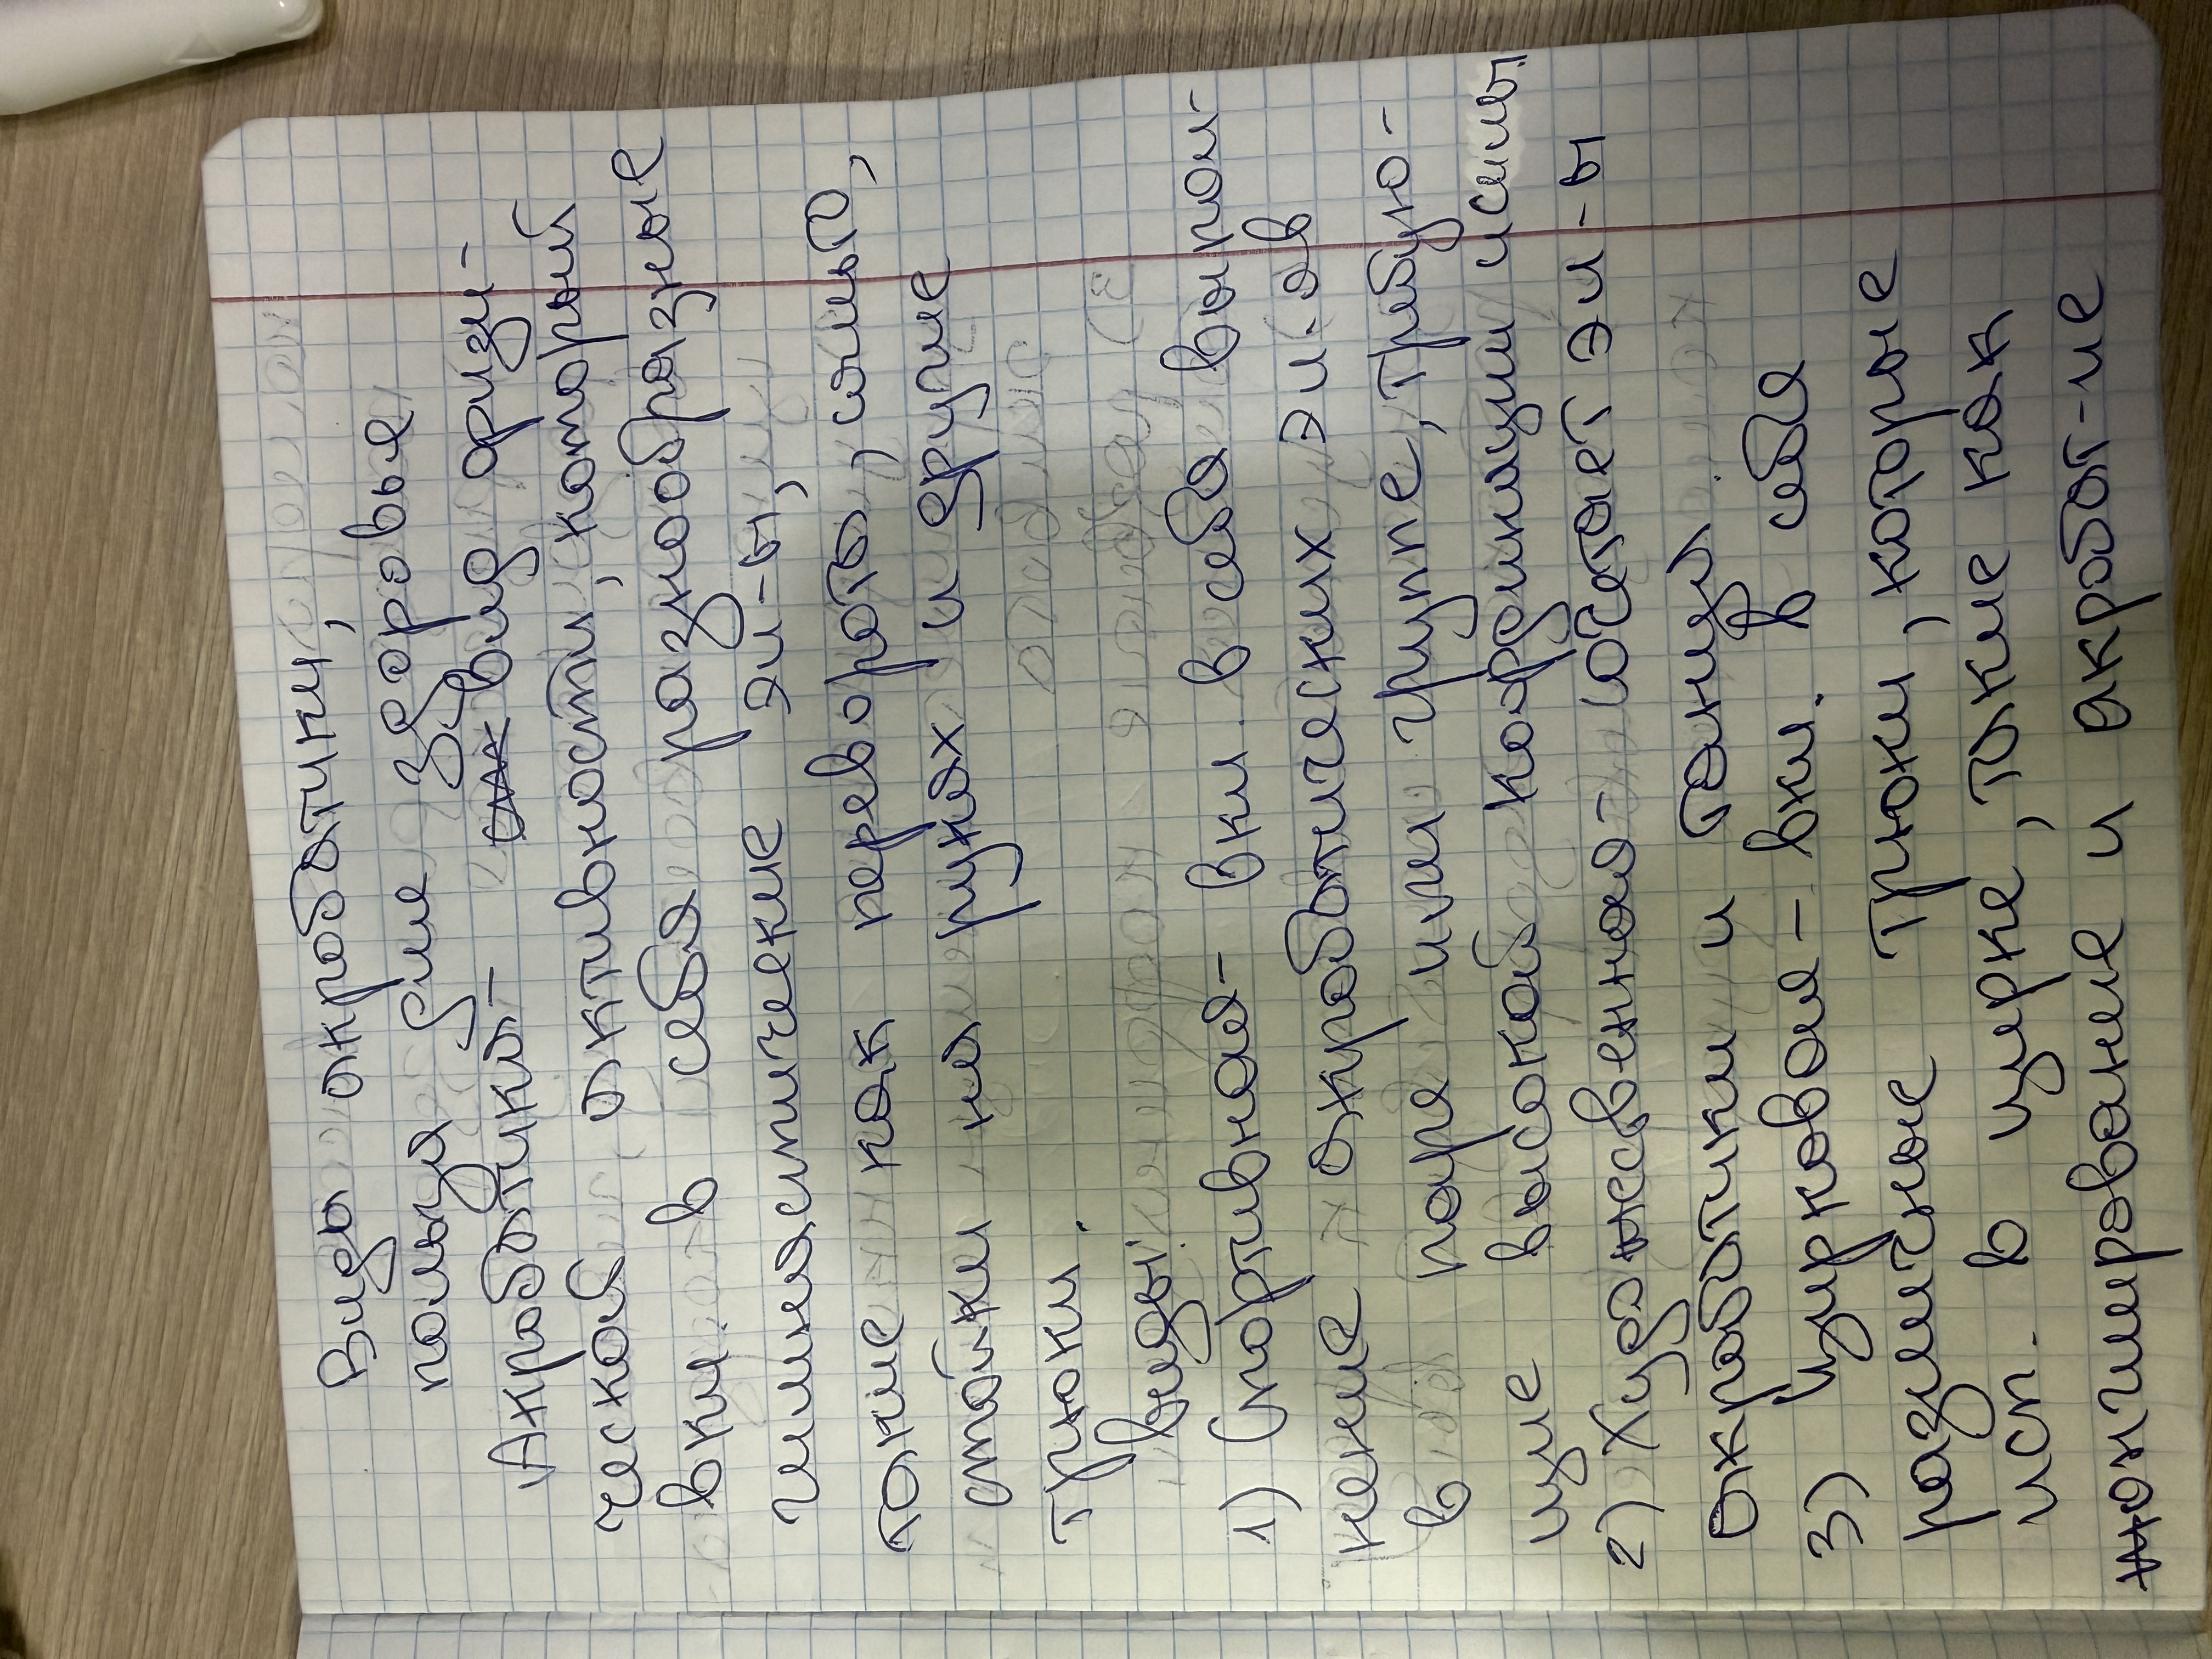 Виды акробатики,
польза для здоровья
Акробатика- вид физи-
ческой активности, который
вкл. в себя разнообразные
гимнастические эл-ты,
такие как перевороты, сальто,
стойки на руках и другие
трюки.
Виды:
1) Спортивная- вкл. в себя выпол-
нение акробатических эл-ов
в паре или группе, требую-
щие высокой координации и силы.
2) Художесвенная- сочетает эл-ты
акробатики и танца.
3) Цирковая- вкл. в себя
различные трюки, которые
исп. в цирке, такие как
жонглирование и акробат-ие